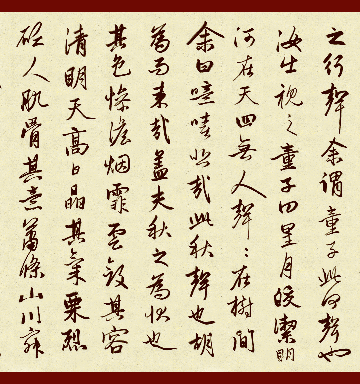 之行聲余謂童子此何聲也
汝出視之童子曰星月皎潔明
河在天四無人聲〻在樹間
余曰噫嘻悲哉此秋聲也胡
為而來哉蓋夫秋之為狀也
其色慘澹烟霏雲斂其容
清明天高日晶其氣栗冽
砭人肌骨其意蕭條山川寂